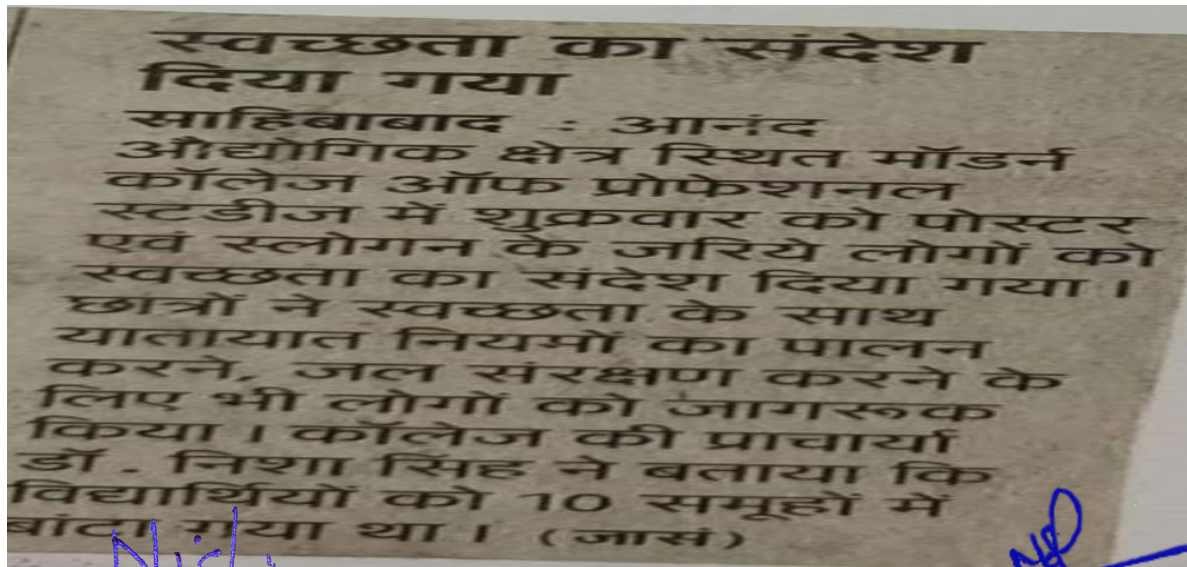 स्वच्छता का संदेश
दिया गया
साहिबाबाद : आनंद
औद्योगिक क्षेत्र स्थित मॉडर्न
कॉलेज ऑफ प्रोफेशनल
स्टडीज में शुक्रवार को पोस्टर
एवं स्लोगन के जरिये लोगों को
स्वच्छता का संदेश दिया गया।
छात्रों ने स्वच्छता के साथ
यातायात नियमों का पालन
करने, जल संरक्षण करने के
लिए भी लोगों को जागरूक
किया। कॉलेज की प्राचार्या
डॉ. निशा सिंह ने बताया कि
विद्यार्थियों को 10 समूहों में
बांटा गया था। (जासं)